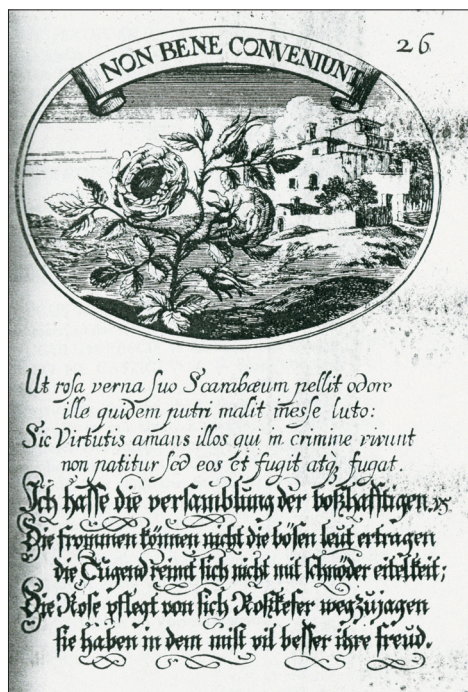 NON BENE CONVENIUNT
26
Ut rosa verna suo Scarabæum pellit odore
ille quidem putri malit inesse luto:
Sic Virtutis amans illos qui in crimine vivunt
non patitur sed eos et fugit atq, fugat.
Ich hasse die versamblung der boßhafftigen.
Die frommen können nicht die bösen leut ertragen
die Tugend reimt sich nicht mit schnöder eitelkeit;
Die Rose pflegt von sich Roßkefer wegzujagen
sie haben in dem mist vil besser ihre freud.